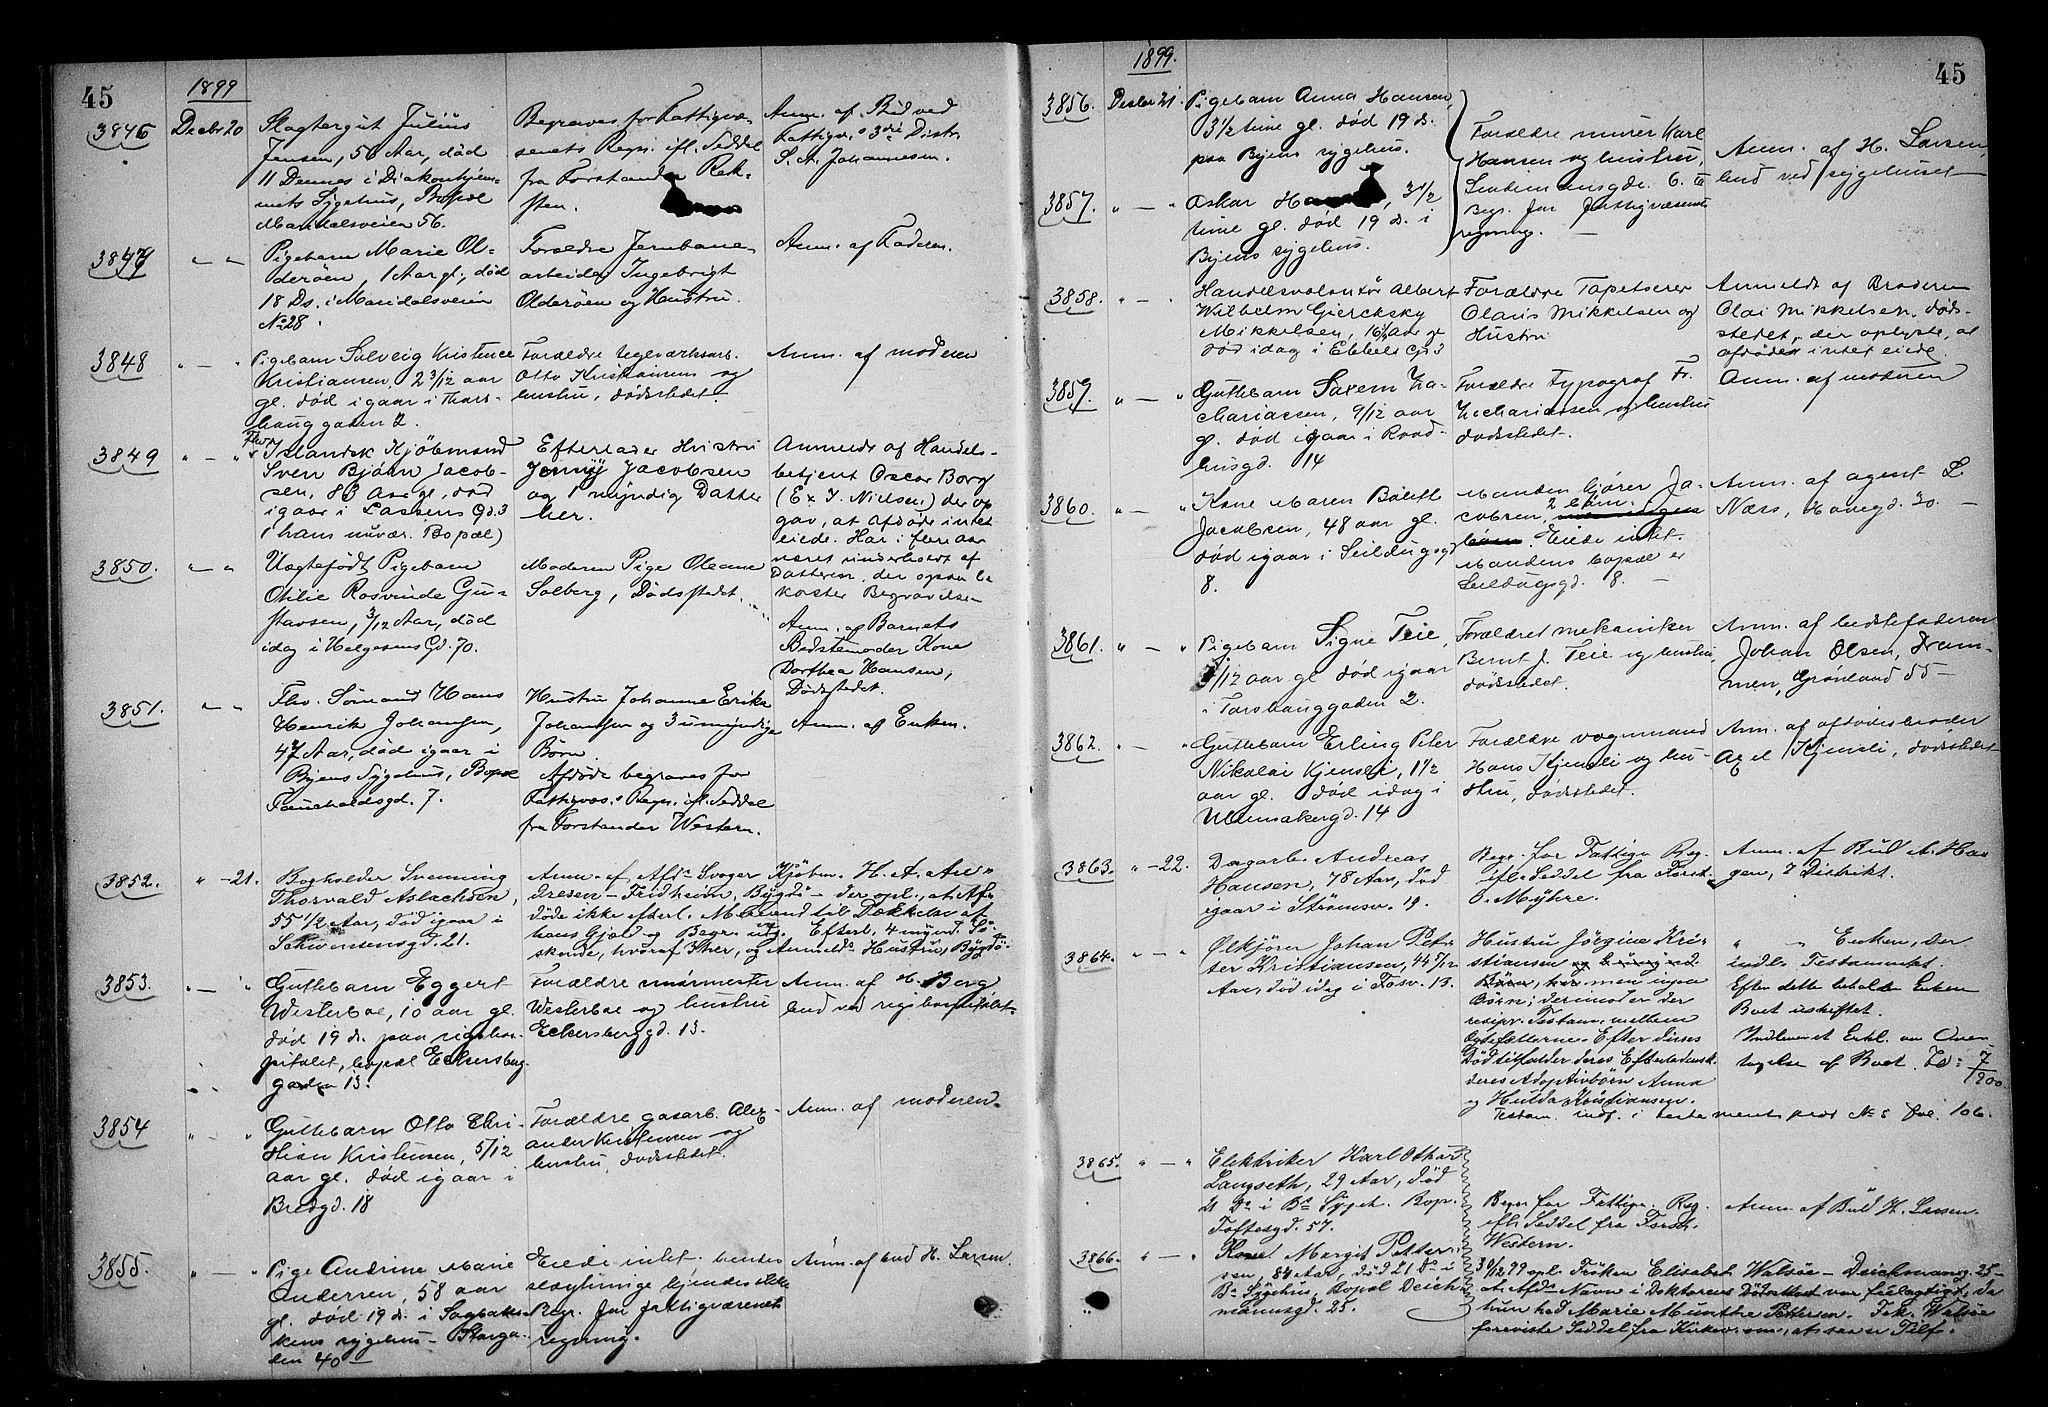 45
1899
3846
Decbr 20
Slagtergut Julius
Jensen, 56 Aar, død
11 Dennes i Diakonhjem-
mets Sygehus, Bopæl
Maridalsveien 56.
Begraves for Fattigvæ-
senets Regn. ifl. Seddel
fra Forstander Rek-
sten.
Anm. af Bud ved
Fattigv.s 3die Distr.
S. A. Johannesen.
3847
Pigebarn Marie Ol-
derøen, 1 Aar gl., død
18 Ds. i Maridalsveien
No 28.
Forældre Jernbane-
arbeider Ingebrigt
Olderøen og Hustru.
Anm. af Faderen.
3848
Pigebarn Solveig Kristence
Kristiansen, 2 3/12 aar
gl. død igaar i Thors-
hauggaden 2.
Forældre teglværksarb.
Otto Kristiansen og
hustru, dødsstedet.
Anm. af moderen
3849
Fhv. Islandsk Kjøbmand
Sven Bjørn Jacob-
sen, 83 Aar gl., død
igaar i Lassens Gd. 3
(hans nuvær. Bopæl)
Efterlader Hustru
Jenny Jacobsen
og 1 myndig Datter
her.
Anmeldt af Handels-
betjent Oscar Borg
(Ex J. Nielsen) der op-
gav, at Afdøde intet
eiede. Har i flere aar
været underholdt af
Datteren, der ogsaa be-
koster Begravelsen
3850.
Uægtefødt Pigebarn
Otilie Rosvinde Gu-
stavsen, 3/12 Aar, død
idag i Helgesens Gd. 70.
Moderen Pige Oleane
Solberg, Dødsstedet.
Anm. af Barnets
Bedstemoder Kone
Dorthea Hansen,
Dødsstedet.
3851.
Fhv. Sømand Hans
Henrik Johansen,
47 Aar, død igaar i
Byens Sygehus, Bopæl
Fauchaldsgd. 7.
Hustru Johanne Erika
Johansen og 3 umyndige
Børn.
Afdøde begraves for
Fattigvæs.s Regn. ifl. Seddel
fra Forstander Western.
Anm. af Enken.
3852.
" - 21.
Bogholder Svenning
Thorvald Aslachsen,
55 1/2 Aar, død igaar i
Schwensensgd. 21.
Anm. af, Afds Svoger Kjøbm. H. A. An-
dresen - Fredheim, Bygdø - der opl., at Af-
døde ikke efterl. Mere end til Dækkelse af
hans Gjæld og Begr. udg. Efterl. 4 mynd. Sø-
skende, hvoraf 3 her, og Anmelds Hustru, Bygdø
3853.
Guttebarn Eggert
Westerboe, 10 aar gl.
død 19 ds. paa rigshos-
pitalet, bopæl Eckersberg-
gaden 13.
Forældre murmester
Westerboe og hustru
Eckersberggd. 13.
Anm. af H. Berg
bud ved rigshospitalet
3854
Guttebarn Otto Chri-
stian Kristensen, 5/12
aar gl. død igaar i
Bredgd. 18
Forældre gasarb. Alex-
ander Kristensen og
hustru, dødsstedet.
Anm. af moderen.
3855.
Pige Andrine Marie
Andersen, 58 aar
gl. død 19 ds. i Sagbak-
kens sygehus - Storga-
den 40
Eiede intet
slægtninge kjendes ikke
Begr. for fattigvæsenets
regning.
Anm. af bud H. Larsen.
45
1899.
3856.
Decbr 21
Pigebarn Anna Hansen,
3 1/2 time gl. død 19 ds.
paa Byens sygehus.
3857.
Oskar, 3 1/2
time gl. død 19 ds. i
Byens sygehus.
Forældre murer Karl
Hansen og hustru,
gd. 6.
Begr. for fattigvæsenets
regning.
Anm. af H. Larsen,
bud ved sygehuset
3858.
Handelsvolontør Albert
Wilhelm Giercksky
Mikkelsen, 16 1/2 Aar gl.
død idag i Ebbels Gd 3
Forældre Tapetserer
Olaris Mikkelsen og
Hustru
Anmeldt af Broderen
Olai Mikkelsen, døds-
stedet, der oplyste, at
afdøde intet eiede.
3859.
Guttebarn Saxem Za-
chariassen, 9/12 aar
gl. død igaar i Raad-
husgd. 14
Forældre typograf Fr.
Zachariassen og hustru
dødsstedet.
Anm. af moderen
3860.
Kone Maren Bolett
Jacobsen, 48 aar gl.
død igaar i Seildugsgd.
8.
Manden kjører Ja-
cobsen, 2 børn.
Eiede intet.
Mandens bopæl er
Seildugsgd. 8.
Anm. af agent L.
Næss, gd. 30.
3861.
Pigebarn Signe Teie,
/12 aar gl død igaar
i Torshauggaden 2.
Forældre mekaniker
Bernt J. Teie og hustru,
dødsstedet.
Anm. af bedstefaderen
Johan Olsen, Dram-
men, Grønland 55
3862.
Guttebarn Erling Peter
Nikolai Kjensli, 1 1/2
aar gl. død idag i
Ullensakergd. 14
Forældre vognmand
Hans Kjensli og hu-
stru, dødsstedet.
Anm. af afdødes broder
Axel Kjensli, dødsstedet
3863.
" - 22.
Dagarb. Andreas
Hansen, 78 Aar, død
igaar i Strømsv. 19.
Begr. for Fattigv. Reg.
ifl. Seddel fra Forst.
O. Myhre.
Anm. af Bud A. Ha-
gen, 7 Distrikt.
3864.
Ølkjører Johan Pet-
ter Kristiansen, 44 5/12
Aar, død idag i Fosv. 13.
Hustru Jørgine Kri-
stiansen men ingen
Børn; derimod er der
recipr. Testam. mellem
Ægtefællerne. Efter dines
Død tilfalder deres Efterladensk.
deres Adoptivbørn Anna
og Hulda Kristiansen.
Testam. indf. i testamentsprot No 5 Fol. 106.
" " Enken, der
indl. Testamentet.
Efter dette beholder Enken
Boet uskiftet.
Indleveret Erkl. om Over-
tagelse af Boet. 7/1 900
3865.
Elektriker Karl Othar
Langseth, 29 Aar, død
21 Ds i Bs Sygeh. Bop.
Toftesgd. 57.
3866.
Kone Margit Petter-
sen, 84 Aar, død 21 Ds i
Bs Sygehus, Bopæl Deich-
mannsgd. 25.
Begr. for Fattigv. Reg.
ifl. Seddel fra Forst.
Western.
Anm. af Bud H. Larsen.
3 0/12 99 opl. Frøken Elisabet Walsøe - Deichmansg. 25 -
at Afds Navn i Doktorens Dødsattest var feilagtigt, da
hun hed Marie Munthe Petersen. Frk. Walsøe
foreviste Seddel fra Kirkev. om, at saa er Tilf.